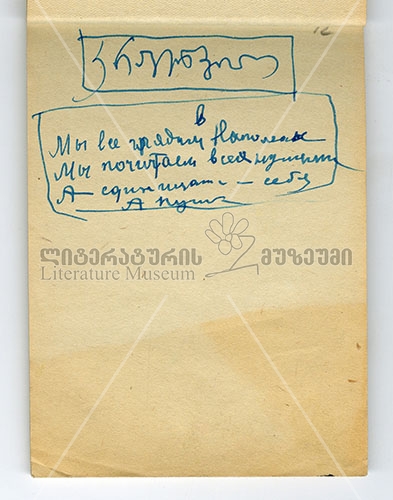 в
Мы все глядим Наполеоны
Мы почитаем всех нулями
А единицами – себя
А Пушк
ლიტერატურის მუზეუმი
Literature Museum